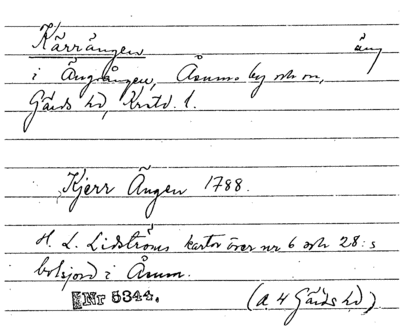 Kärrängen äng
i Ängavången, Åsums by och sn,
Gärds hd, Krstd. l.
Kjerr Ängen 1788.
H. L. Lidströms kartor över nr 6 och 28:s
bokjord i Åsum.
Nr 5344. (a 4 Gärds hd)